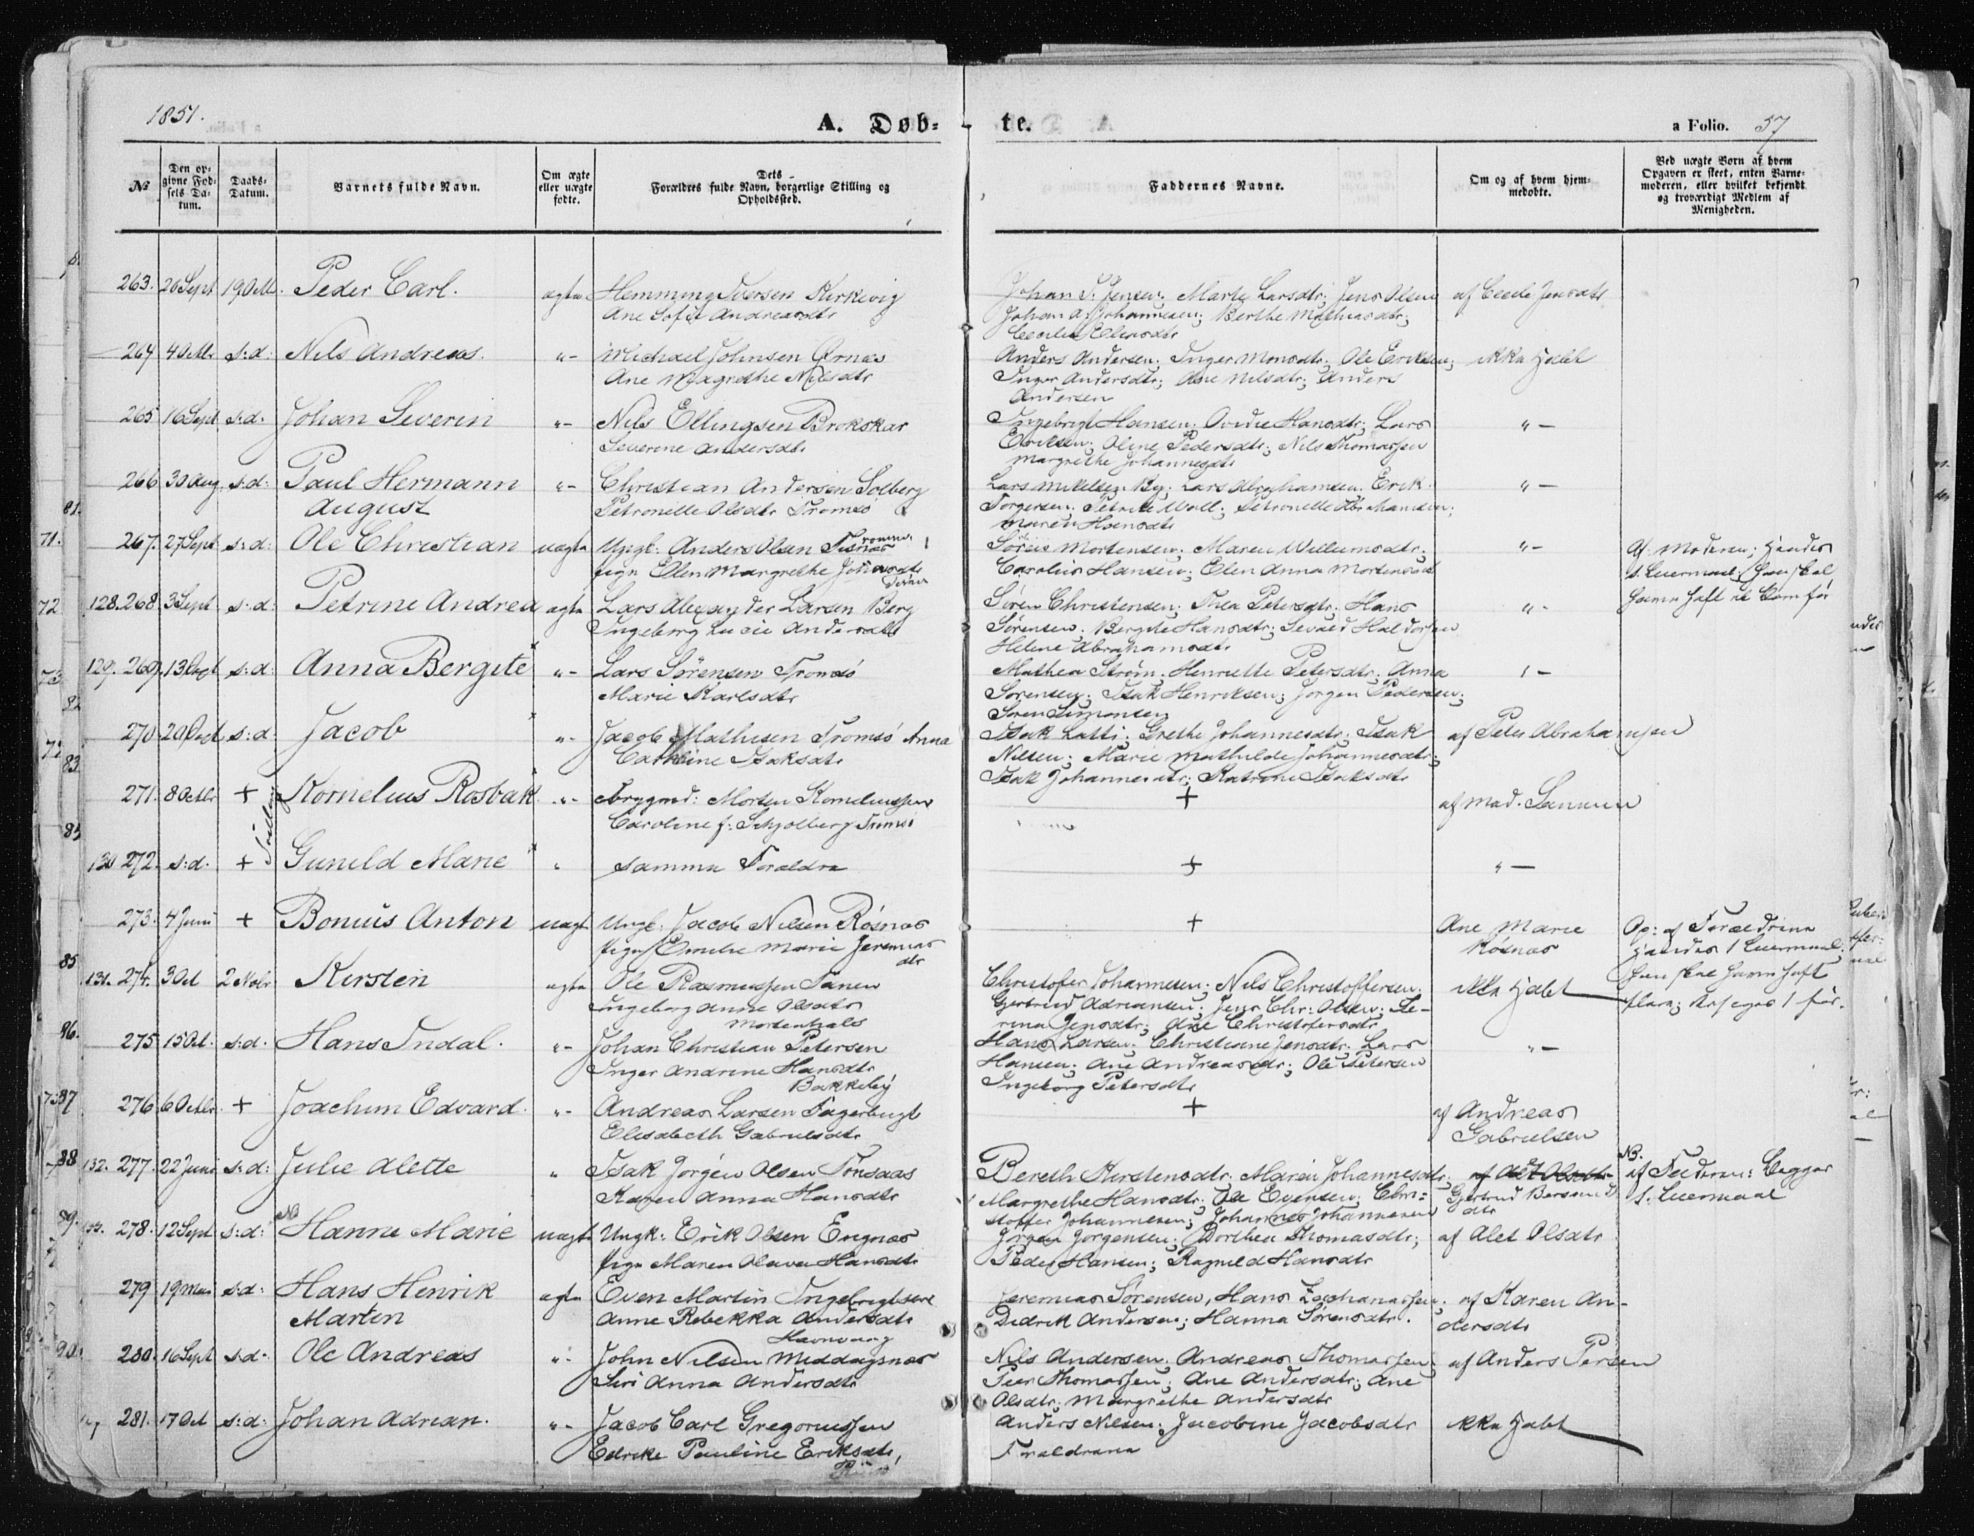 1851.
A. Døb-
te.
a Folio. 57
№
Den opgivne Fødsels Datum.
Daabs-Datum.
Barnets fulde Navn.
Om ægte eller uægte fødte.
Dets Forældres fulde Navn, borgerlige Stilling og Opholdssted.
Faddernes Navne.
Om og af hvem hjemmedøbte.
Ved uægte Børn af hvem Opgaven er skeet, enten Barnemoderen, eller hvilket bekjendt og troværdigt Medlem af Menigheden.
263. 20 Sept 19 Octl. Peder Carl. ægte Hemming Iversen Kirkevig
Ane Sofie Andreasdtr
Johan P. Jensen; Marte Larsdtr; Jens Olsen af Cecele Jensdtr
Johan A. Johannesen; Berthe Mathiasdtr;
Cecilie Elisdtr
264 4 Octlr s:d: Nils Andreas. "- Michael Johnsen Ørnæs
Ane Magrethe Nilsdtr
Anders Andersen; Inger Monsdtr; Ole Eriksen; ikke hjebt
Inger Andersdtr; Ane Nilsdtr; Anders
Andersen
265 16 Sept s:d: Johan Severin "- Nils Ellingsen Brokskar
Severine Andersdtr
Ingebrigt Hansen; Ovedie Hansdtr; Lars "-
Eriksen; Oline Pedersdtr; Nils Thomassen
Margrethe Johannesdtr
266 30 Aug. s:d: Paul Hermann "- Christian Andersen Solberg
August Petronelle Olsdtr Tromsø
Lars Mikelsen By; Lars Abrahamsen; Erik "-
Torgersen; Petrike Wall; Petronelle Abrahamsen;
Maren Hansdtr
267. 27 Sept s:d: Ole Christian uægte Ungk: Anders Olsen Tisnæs
Pige Ellen Margrethe Johansdtr
Søren Mortensen; Maren Willumsdtr; "- Af Moderen; hendes
Carolius Hansen; Elen Anna Mortensdtr 1. Leiermaal; han skal
have haft et Barn før
128. 268. 3 Sept s:d: Petrine Andrea ægte Lars Alexander Larsen Berg
Ingeborg Lucie Andersdtr
Søren Christensen; Thea Petersdtr; Hans "-
Sørensen; Bergite Hansdtr; Sevald Haldorsen
Helene Abrahamsdtr
129. 269. 13 Sept s:d: Anna Bergite "- Lars Sørensen Tromsø
Marie Karlsdtr
Mathea Strøm; Henriette Petersdtr; Anna "-
Sørensen; Isak Henriksen; Jørgen Pedersen;
Søren Simonsen
270 20 Sept s:d: Jacob "- Jacob Mathisen Tromsø Anna
Cathrine Isaksdtr
Isak Latti; Grethe Johannesdtr; Isak af Peter Abrahamsen
Nilsen; Marie Mathilde Johannesdtr;
Isak Johannesdtr; Katrine Isaksdtr
271. 8 Octlr + Kornelius Rosbak "- Brygmd: Morten Korneliussen
Caroline f: Schjølberg Tromsø
+ af Mad. Lammen
Tvillinger
130 272. s:d. + Gunild Marie " samma Foraldra
+ "-
273. 4 Juni + Bonius Anton uægt Ungk: Jacob Nilsen Røsnæs
Pige Emilie Marie Jeremiasdtr
+ Ane Marie Op: af Foraldrina
Røsnæs hendes 1 Leiermaal;
131. 274. 3 Oct 2 Nobr Kirsten ægte Ole Rasmussen Tanen
Ingeborg Anne Olsdtr
Mortenhals
Christofer Johannesen; Nils Christoffersen; ikke hjebt
Gjertrud Adriansen; Jens Chr: Olsen; Se-
rina Jensdtr; Ane Christofersdtr
275 15 Oct. s:d. Hans Indal. "- Johan Christian Petersen
Inger Andrine Hansdtr
Bakkeby
Hans Larsen; Christiane Jensdtr; Lars "-
Hansen; Ane Andreasdtr; Ole Petersen
Ingeborg Petersdtr
276 6 Octlr + Joachim Edvard "- Andreas Larsen Fagerbugt
Elisabeth Gabrielsdtr
+ af Andreas
Gabrielsen
132. 277. 22 Juni s:d: Julie Alette " Isak Jørgen Olsen Tonsaas
Karen Anna Hansdtr
Bereth Kirstensdtr; Maren Johannesdtr;
Margrethe Hansdtr; Ole Evensen; Chri-
stoffer Johannesen; Johannes Johannesen
NB. af Faderen; begges
1. Leiermaal
133. 278. 12 Sept s:d: Hanne Marie uægt Ungk: Erik Olsen Engnæs
Pige Maren Olava Hansdtr
Jørgen Jørgensen; Dorthea Thomasdtr; af Alet Olsdtr
Peder Hansen; Ragnild Hansdtr
279 19 Mai s:d: Hans Henrik ægte Even Martin Ingebrigtsen
Marten Anne Rebekka Andersdtr
Havnvaag
Jeremias Sørensen, Hans Zachariassen; af Karen An-
Didrik Andersen; Hanna Sørensdtr. dersdtr
280. 16 Sept s:d: Ole Andreas "- John Nilsen Middagsnæs
Siri Anna Andersdtr
Nils Andersen; Andreas Thomassen; af Anders Persen
Peer Thomassen; Ane Andersdtr; Ane
Olsdtr; Margrethe Andersdtr
281. 17 Oct s:d: Johan Adrian. "- Jacob Carl Gregoriussen
Edrike Pauline Eriksdtr,
Anders Nilsen; Jacobine Jacobsdtr ikke hjebt
Foraldrana